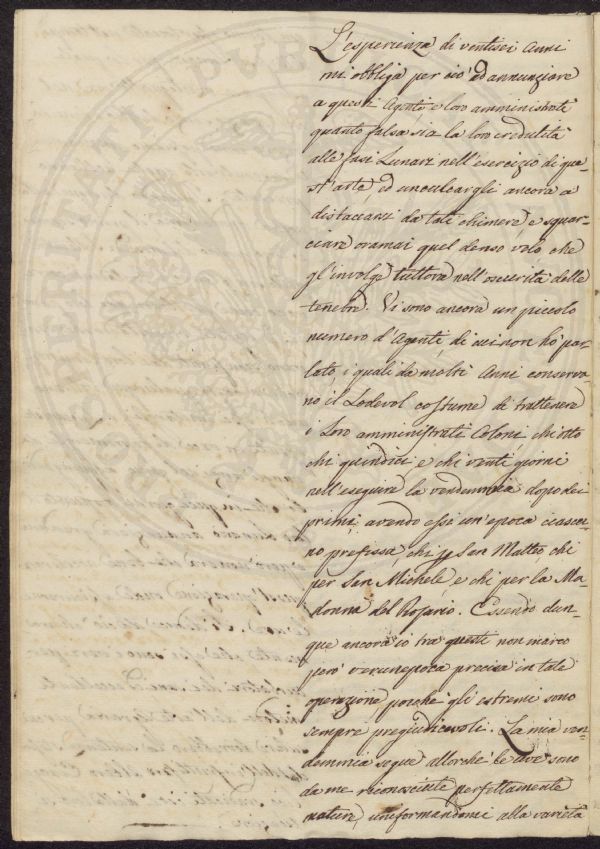 L'esperienza di ventisei Anni
mi obbliga per ciò ad annunziare
a questi Agenti e loro amministrati
quanto falsa sia la loro credulità
alle fasi Lunari nell'esercizio di que-
st'arte, ed inculcargli ancora a
distaccarsi da tali chimere, e squar-
ciare oramai quel denso velo, che
gl'involge tuttora nell'oscurità delle
tenebre. Vi sono ancora un piccolo
numero d'Agenti di cui non ho par-
lato, i quali da molti Anni conserva-
no il Lodevol costume di trattenere
i Loro amministrati Coloni, chi otto
chi quindici e chi venti giorni
nell'eseguire la vendemmia dopo dei
primi, avendo essi un'epoca ciascu-
no prefissa, chi per San Matteo, chi
per San Michele, e chi per la Ma-
donna del Rosario. Essendo dun-
que ancora io tra questi non marco
però verun'epoca precisa in tale
operazione perchè gli estremi sono
sempre pregiudicevoli. La mia ven-
demmia segue allorchè le uve sono
da me riconosciute perfettamente
mature, uniformandomi alla varietà